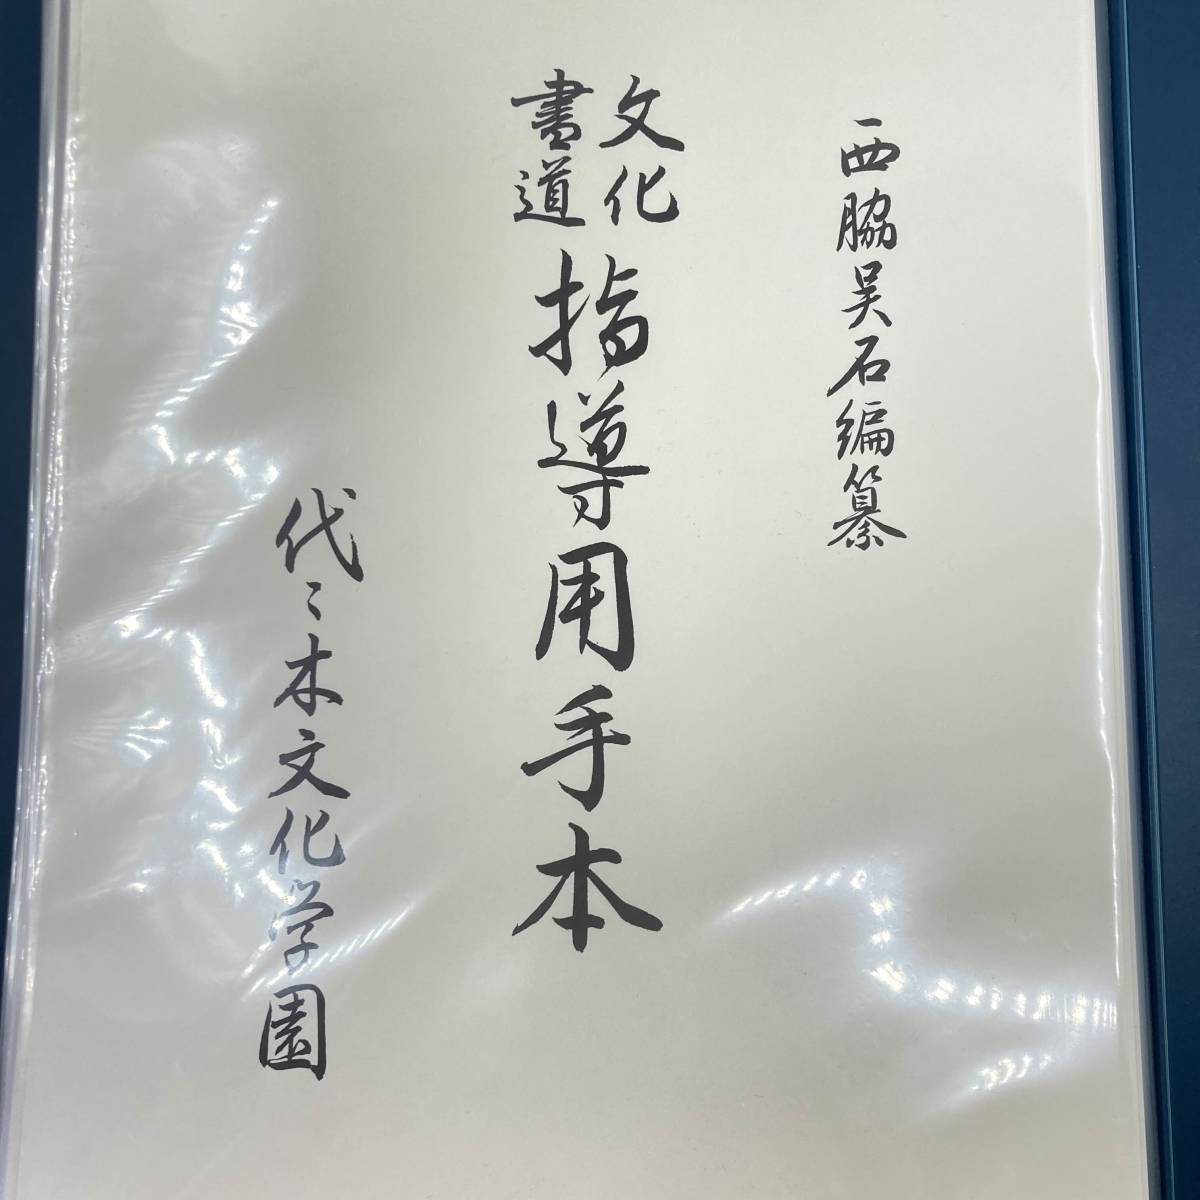 西脇呉石編纂
文化
書道
指導用手本
代々木文化学園